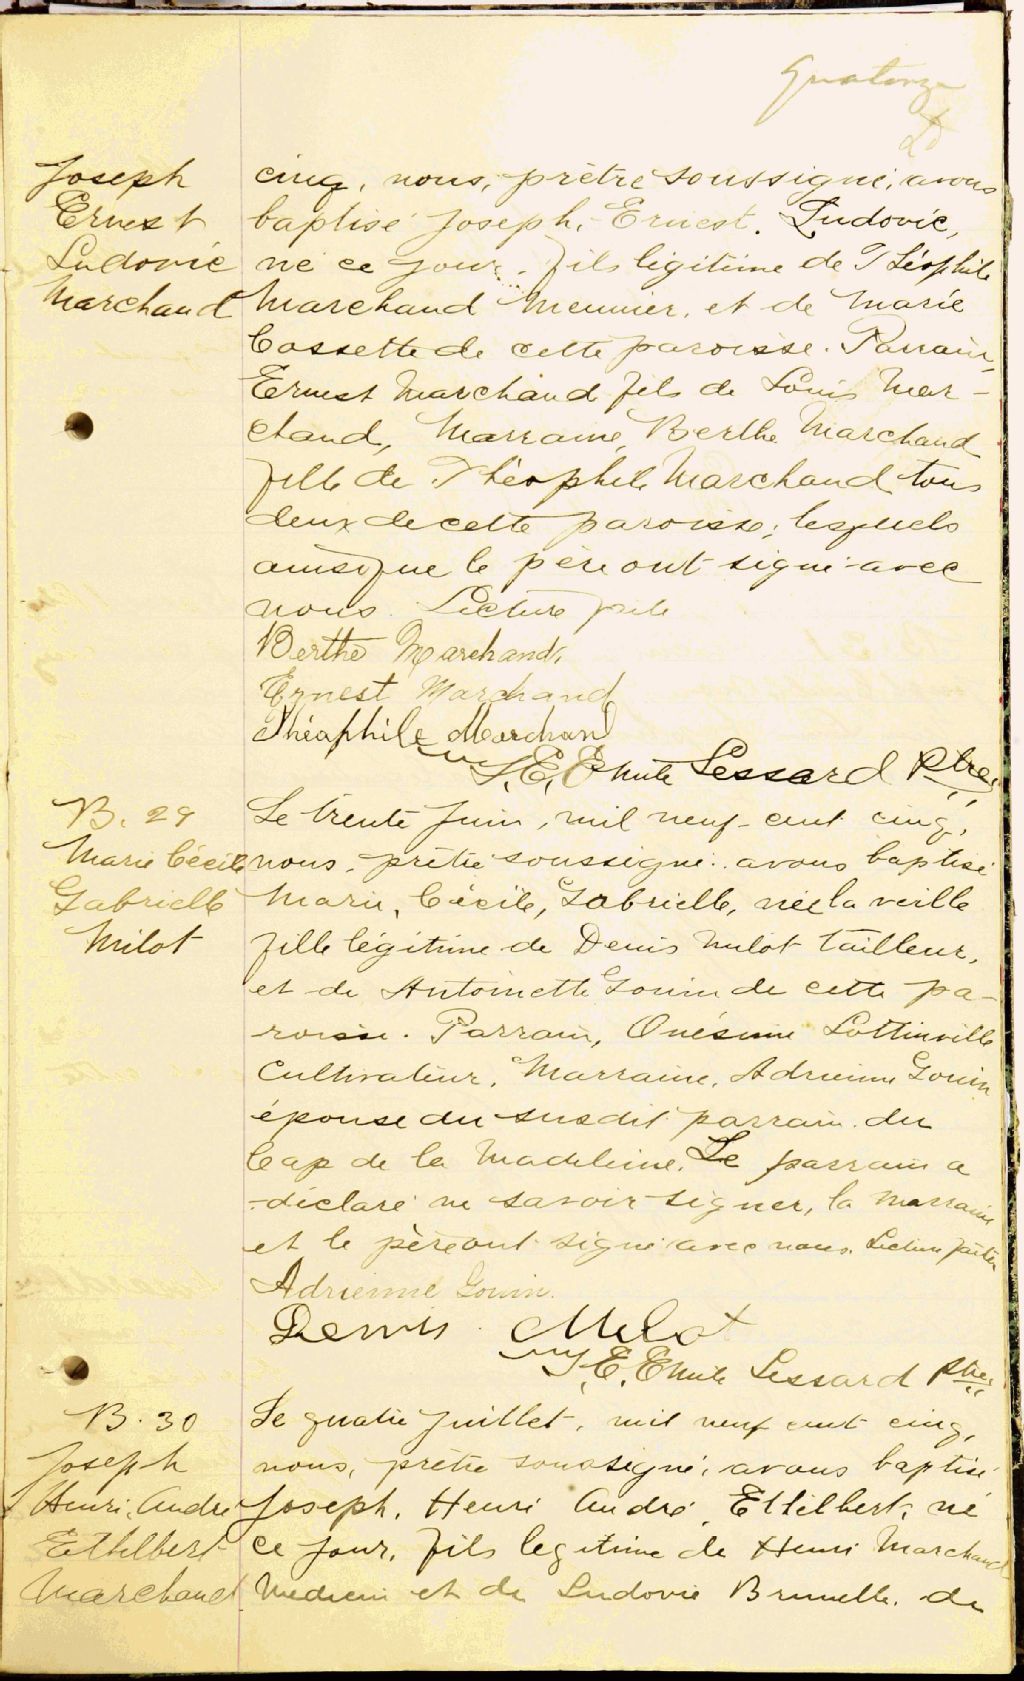 Quatorze
Joseph
Ernest
Ludovic
Marchand
cinq, nous, prêtre soussigné, avons
baptisé Joseph, Ernest, Ludovic,
né ce jour, fils légitime de Théophile
Marchand meunier, et de Marie
Cossette de cette paroisse. Parrain,
Ernest Marchand fils de Louis Mar-
chand, Marraine, Berthe Marchand
fille de Théophile Marchand tous
deux de cette paroisse; lesquels
ainsi que le père ont signé avec
nous. Lecture faite
Berthe Marchand,
Ernest Marchand
Théophile Marchand
J. E. Emile Lessard Ptre
B. 29
Marie Cécile
Gabrielle
Milot
Le trente Juin, mil neuf cent cinq,
nous, prêtre soussigné, avons baptisé
Marie, Cécile, Gabrielle, née la veille
fille légitime de Denis Milot tailleur,
et de Antoinette Gouin de cette pa-
roisse. Parrain, Onésime Lottinville
Cultivateur, Marraine, Adrienne Gouin
épouse du susdit parrain du
Cap de la Madeleine. Le parrain a
déclaré ne savoir signer, la marraine
et le père ont signé avec nous. Lecture faite
Adrienne Gouin.
Denis Milot
J. E. Emile Lessard Ptre
B. 30
Joseph
Henri, André
Ethelbert
Marchand
Le quatre Juillet, mil neuf cent cinq,
nous, prêtre soussigné, avons baptisé
Joseph, Henri André, Ethelbert, né
ce jour, fils légitime de Henri Marchand
Médecin et de Ludovie Brunelle, de